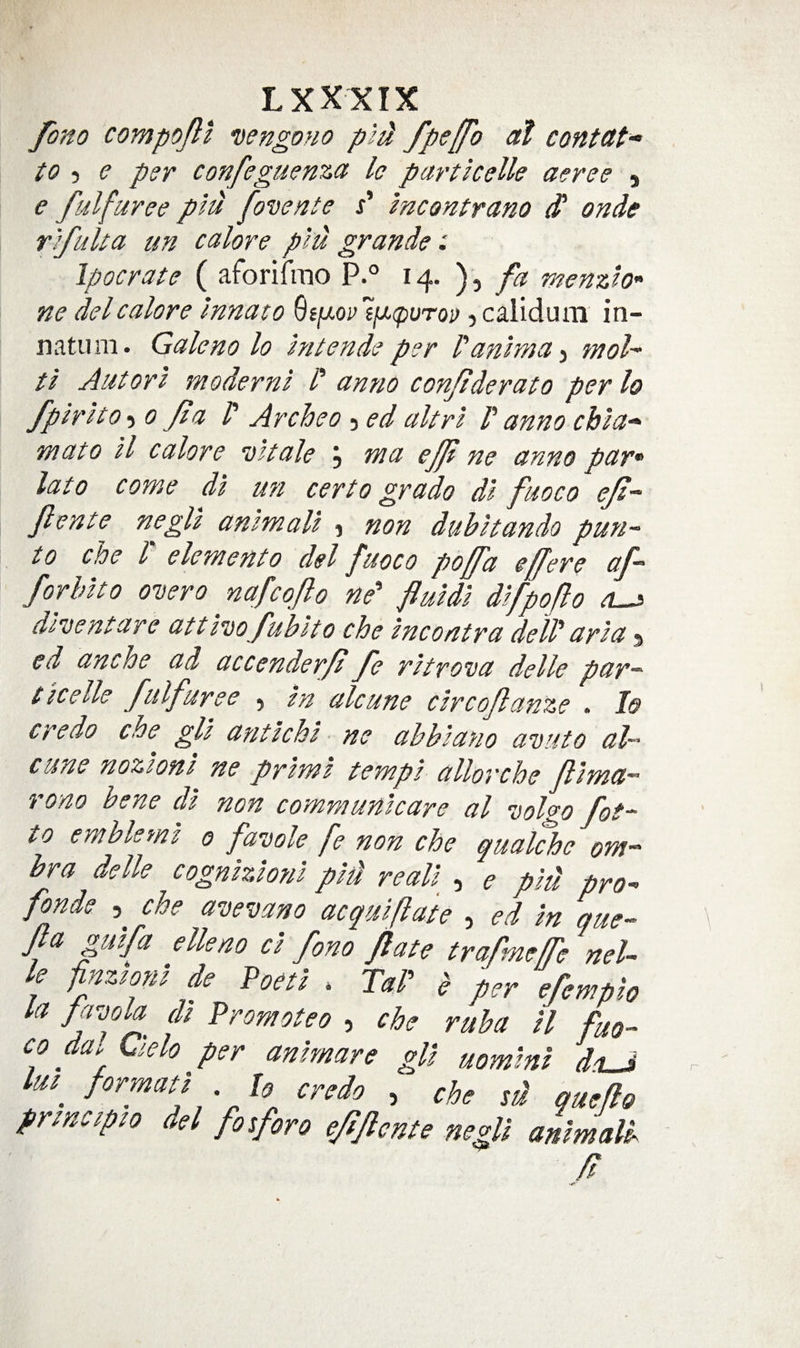 LXXXIX
ſono compoſti vengono più ſpeſſo al contat-
to , e per conſeguenza le particelle aeree ,
e ſulfuree più ſovente s' incontrano d' onde
riſulta un calore più grande :
Ipocrate ( aforiſmo P.º 14. ), fa menzio-
ne del calore innato θεμον εμφυτον , calidum in-
natum. Galeno lo intende per l'anima , mol-
ti Autori moderni l' anno conſiderato per lo
ſpirito , o ſia l' Archeo , ed altri l' anno chia-
mato il calore vitale ; ma eſſi ne anno par-
lato come di un certo grado di fuoco eſi-
ſtente negli animali , non dubitando pun-
to che l' elemento del fuoco poſſa eſſere aſ-
ſorbito overo naſcoſto ne' fluidi diſpoſto a
diventare attivo ſubito che incontra dell' aria ,
ed anche ad accenderſi ſe ritrova delle par-
ticelle ſulfuree , in alcune circoſtanze . Io
credo che gli antichi ne abbiano avuto al-
cune nozioni ne primi tempi allorche ſtima-
rono bene di non communicare al volgo ſot-
to emblemi o favole ſe non che qualche om-
bra delle cognizioni più reali , e più pro-
fonde , che avevano acquiſtate , ed in que-
ſta guiſa elleno ci ſono ſtate traſmeſſe nel-
le finzioni de Poeti . Tal' è per eſempio
la favola di Promoteo , che ruba il fuo-
co dal Cielo per animare gli uomini da
lui formati . Io credo , che sù queſto
principio del fosforo eſiſtente negli animali
ſi